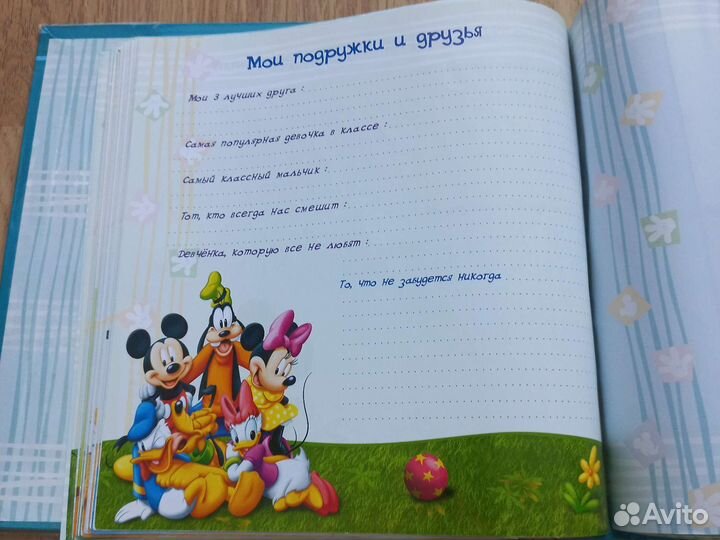 Мои подружки и друзья
Мои 3 лучших друга :
Самая популярная девочка в классе :
Самый классный мальчик :
Тот, кто всегда нас смешит :
Девчёнка, которую все не любят :
То, что не забудется никогда
Avito